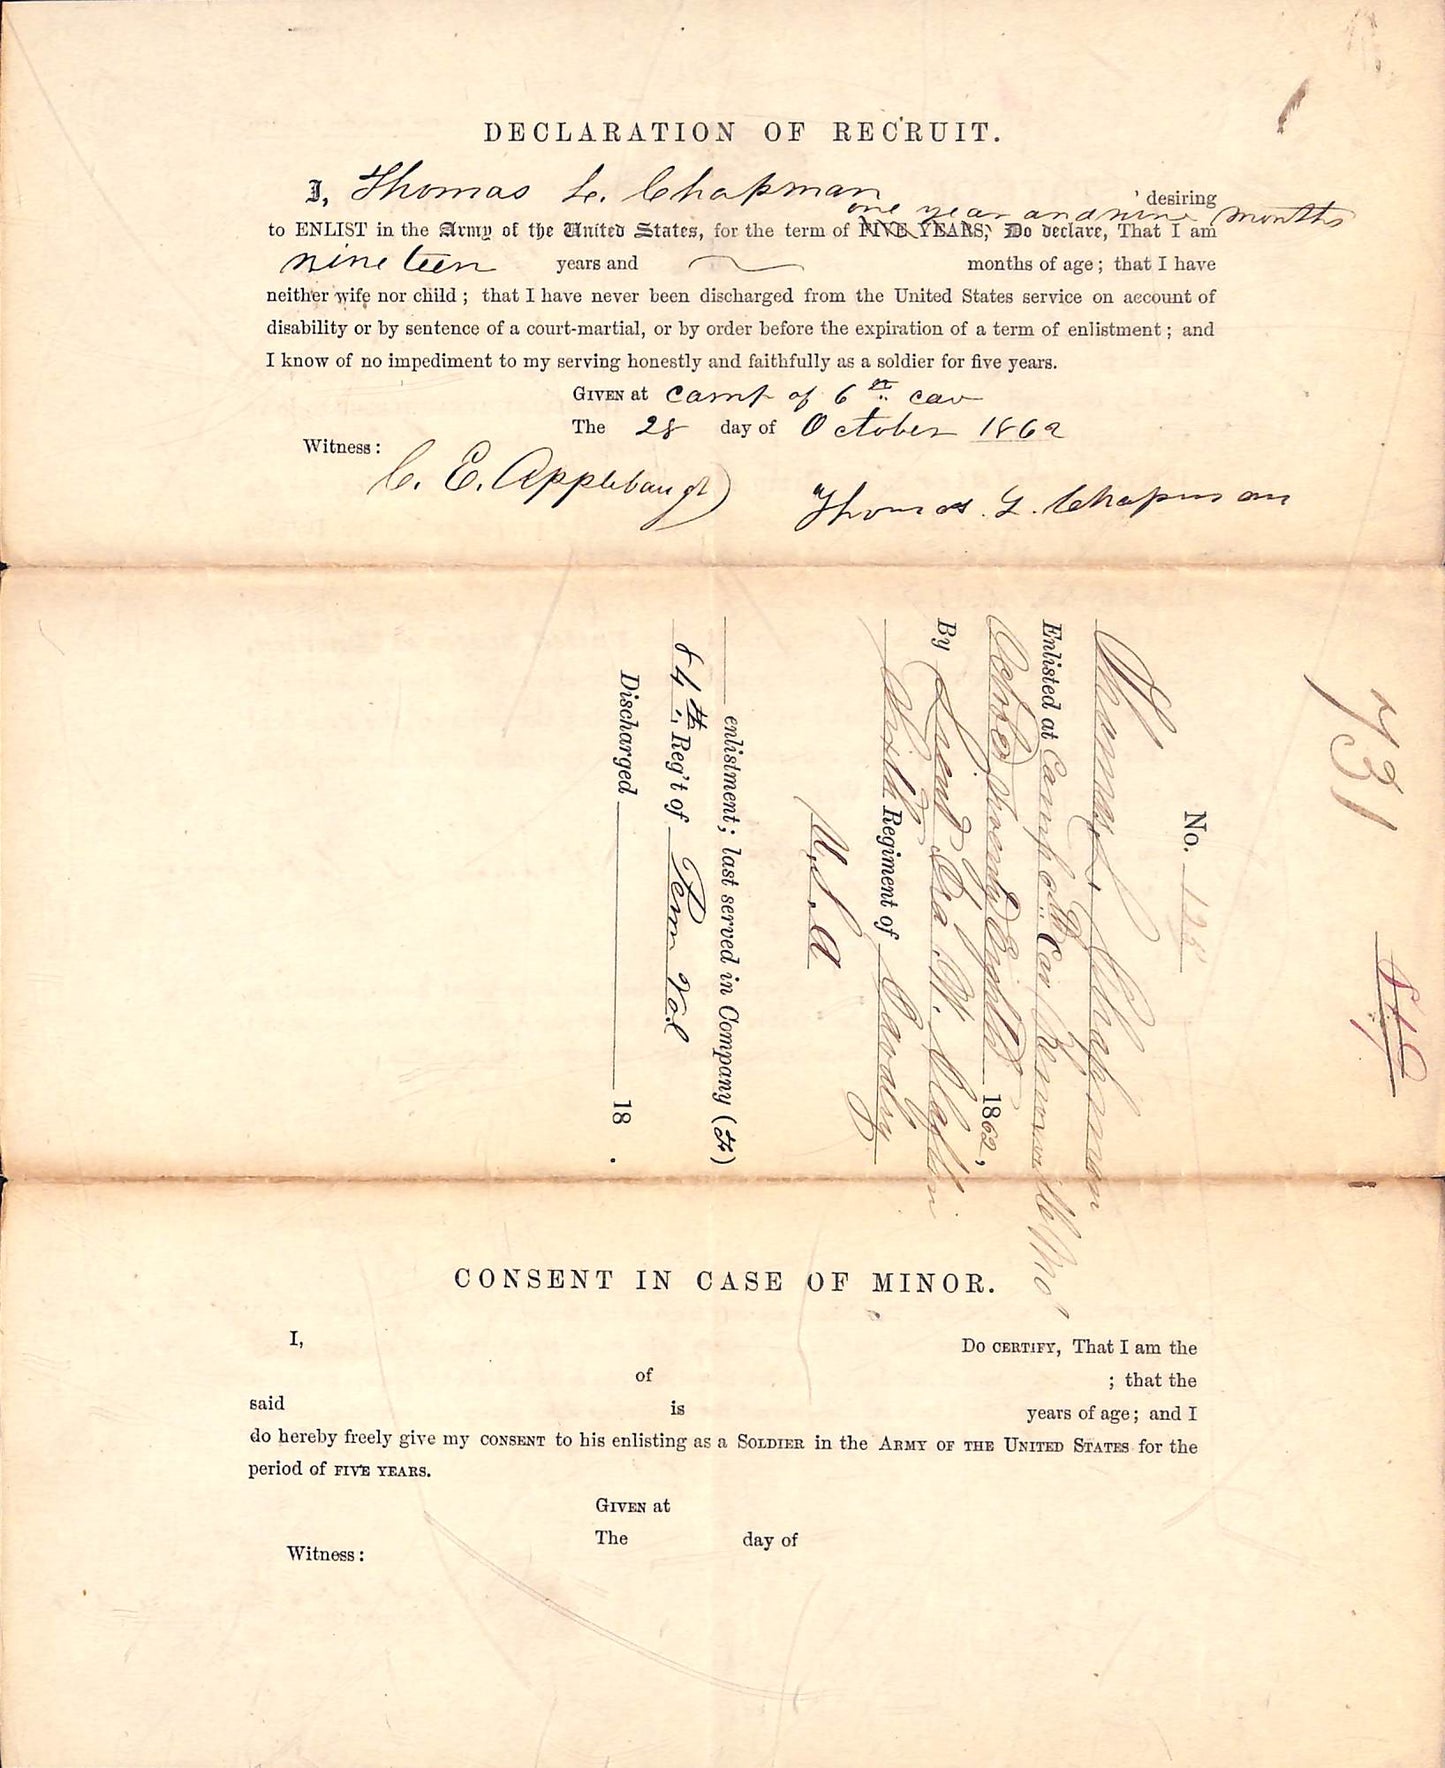 DECLARATION OF RECRUIT.
I, Thomas L. Chapman , desiring
one year and nine months
to ENLIST in the Army of the United States, for the term of FIVE YEARS, Do declare, That I am
nineteen years and months of age; that I have
neither wife nor child; that I have never been discharged from the United States service on account of
disability or by sentence of a court-martial, or by order before the expiration of a term of enlistment; and
I know of no impediment to my serving honestly and faithfully as a soldier for five years.
GIVEN at Camp of 6th Cav
The 28 day of October 1862
Witness:
C. E. Applebaugh
Thomas. L. Chapman
731
849
No. 125
Thomas L. Chapman
Enlisted at Camp of Cav
October Twenty Eighth 1862,
By Lieut Ira W. Claflin
Sixth Regiment of Cavalry
U.S.A
enlistment; last served in Company ( )
84th Reg't of Penn Vol
Discharged 18 .
CONSENT IN CASE OF MINOR.
I, Do CERTIFY, That I am the
of ; that the
said is years of age; and I
do hereby freely give my CONSENT to his enlisting as a SOLDIER in the ARMY OF THE UNITED STATES for the
period of FIVE YEARS.
GIVEN at
The day of
Witness: